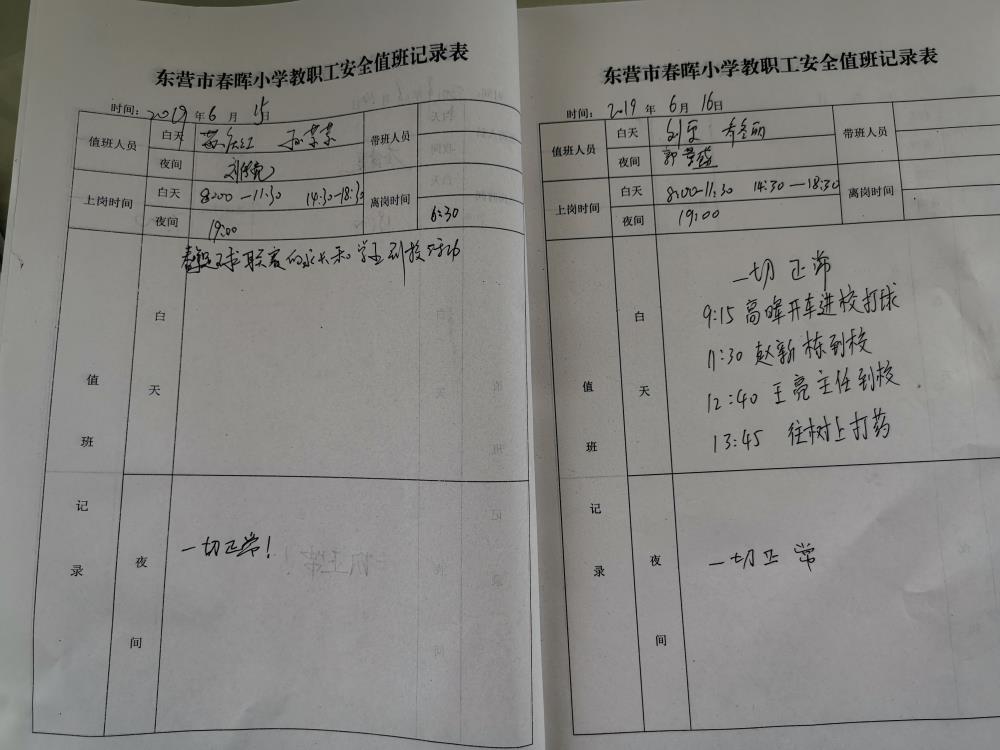 东营市春晖小学教职工安全值班记录表
时间：2019年6月15日
值班人员 白天 带班人员
夜间
上岗时间 白天 8:00—11:30 14:30—18:30 离岗时间
夜间 19:00 6:30
值班记录
白天 联赛的家长和学生到校活动
夜间 一切正常！
东营市春晖小学教职工安全值班记录表
时间：2019年6月16日
值班人员 白天 带班人员
夜间 郭
上岗时间 白天 8:00-11:30 14:30—18:30 离岗时间
夜间 19:00
值班记录
白天 一切正常
9:15 高晖开车进校打球
11:30 赵新栋到校
12:40 王亮主任到校
13:45 往树上打药
夜间 一切正常